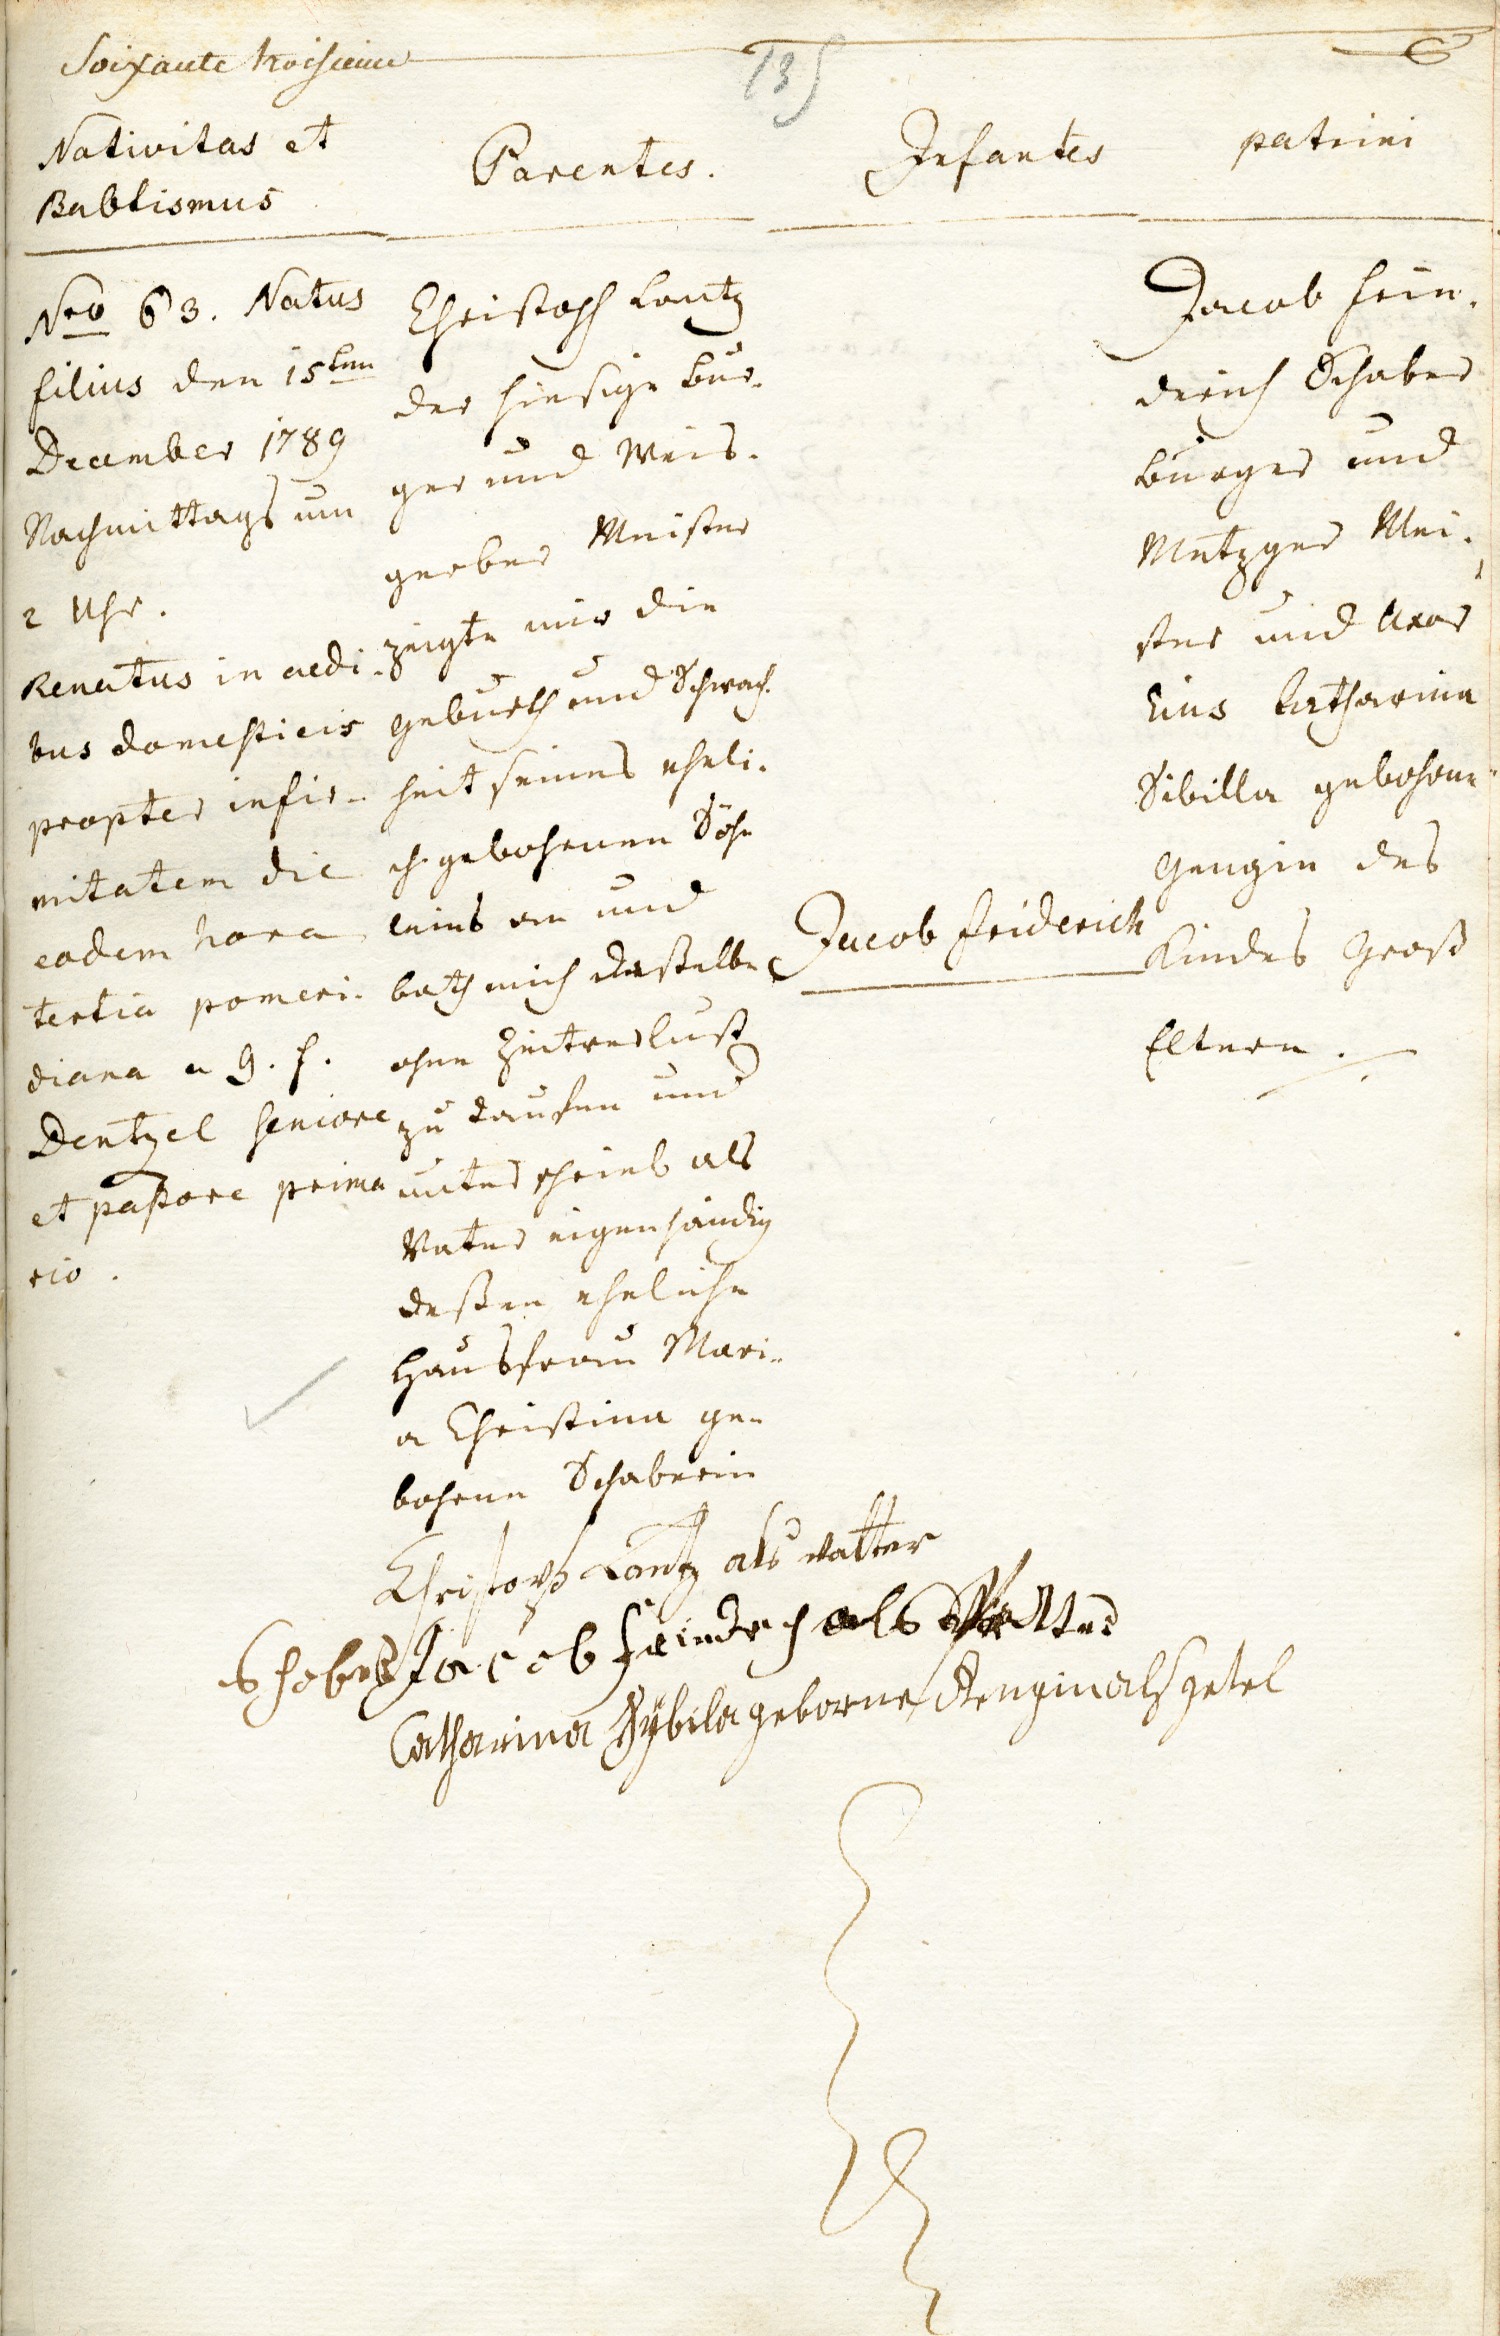 Soixante troisieme
135
Nativitas et
Babtismus
Parentes.
Infantes
patrini
Nro 63. Natus
filius den 15ten
December 1789
Nachmittags um
2 Uhr.
Renatus in aedi-
bus domesticis
propter infir-
mitatem die
eadem hora
tertia pomeri-
diana a g. f.
Dentzel seniore
et pastore prima
rio.
Christoph Lantz
der hiesige Bur-
ger und Weis-
gerber Meister
zeigte mir die
Geburth und Schwach-
heit seines eheli-
ch gebohrenen Söhn
leins an und
bath mich dasselbe
ohne Zeitverlust
zu taufen und
unterschrieb als
Vater eigenhändig
deßen eheliche
Hausfrau Mari-
a Christina ge-
bohrne Schaberin
Jacob Friderich
Jacob Frie-
derich Schaber
Burger und
Metzger Mei-
ster und Uxor
Eius Catharina
Sibilla gebohrne
Gengin des
Kindes Groß
Eltern.
Christoph Lantz als vatter
Schober Jacob Friedrich als
Catharina Sybila geborne Gengin als getel